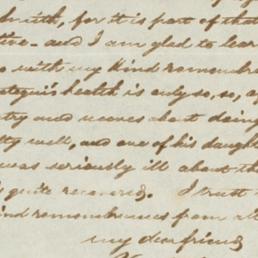 with, for it is part of that
tive - and I am glad to lear
o with my kind remembra
health is only so, so, a
try and moves about doing
tty well, and one of his daugh
was seriously ill about th
s quite recovered. I trust
ind remembrances from all
my dear friend